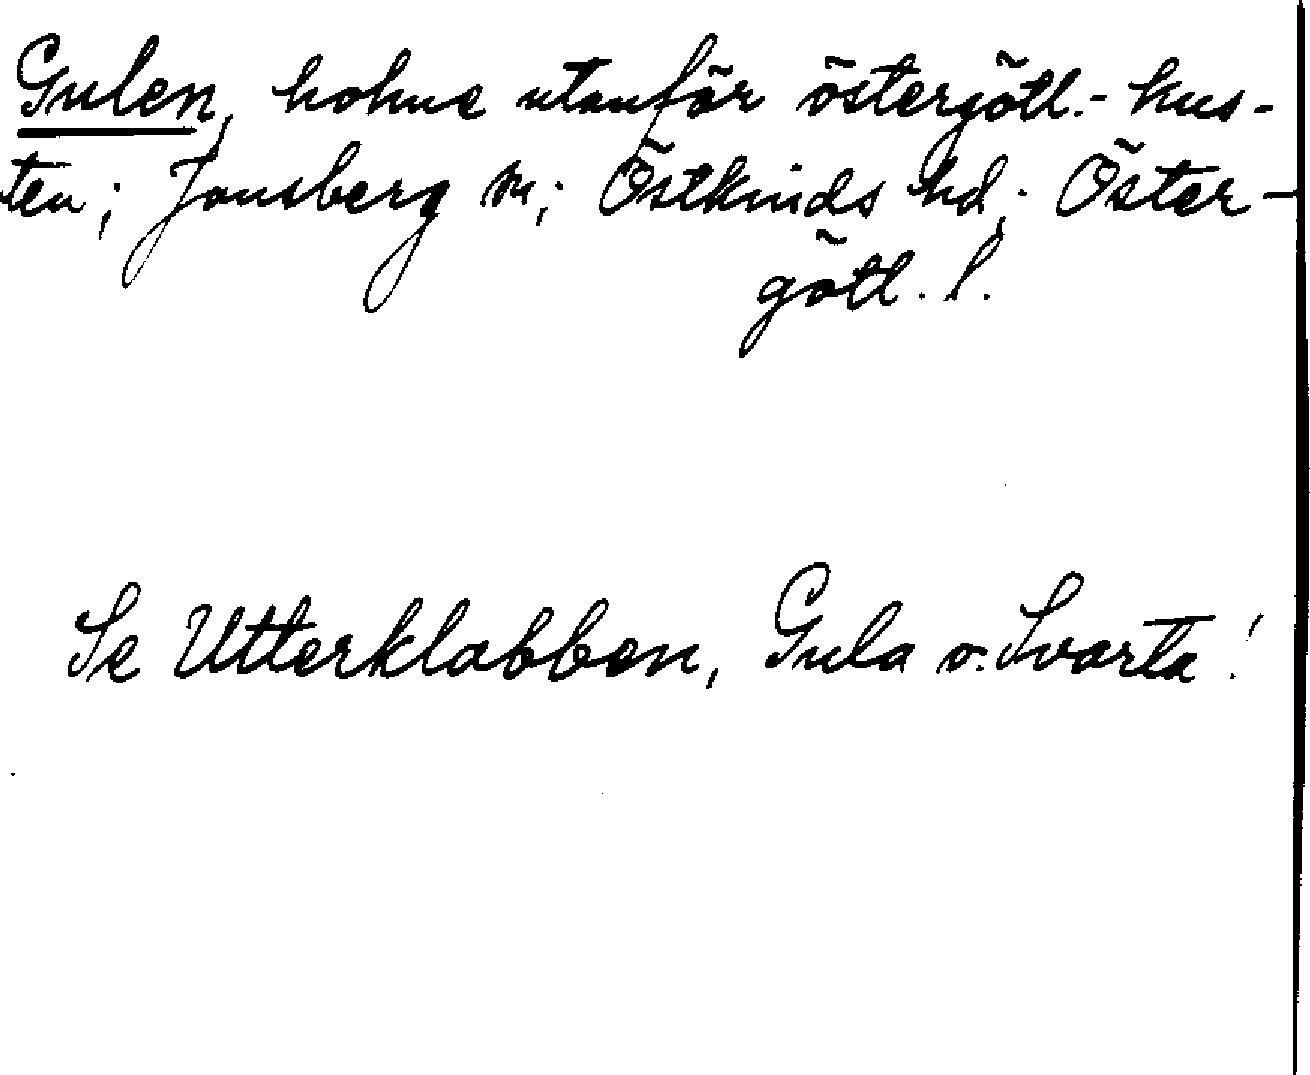 Gulen, holme utanför östergötl.- kus-
ten; Jonsberg sn; Östkinds hd; Öster-
götl. l.
Se Utterklabben, Gula o. Svarta!